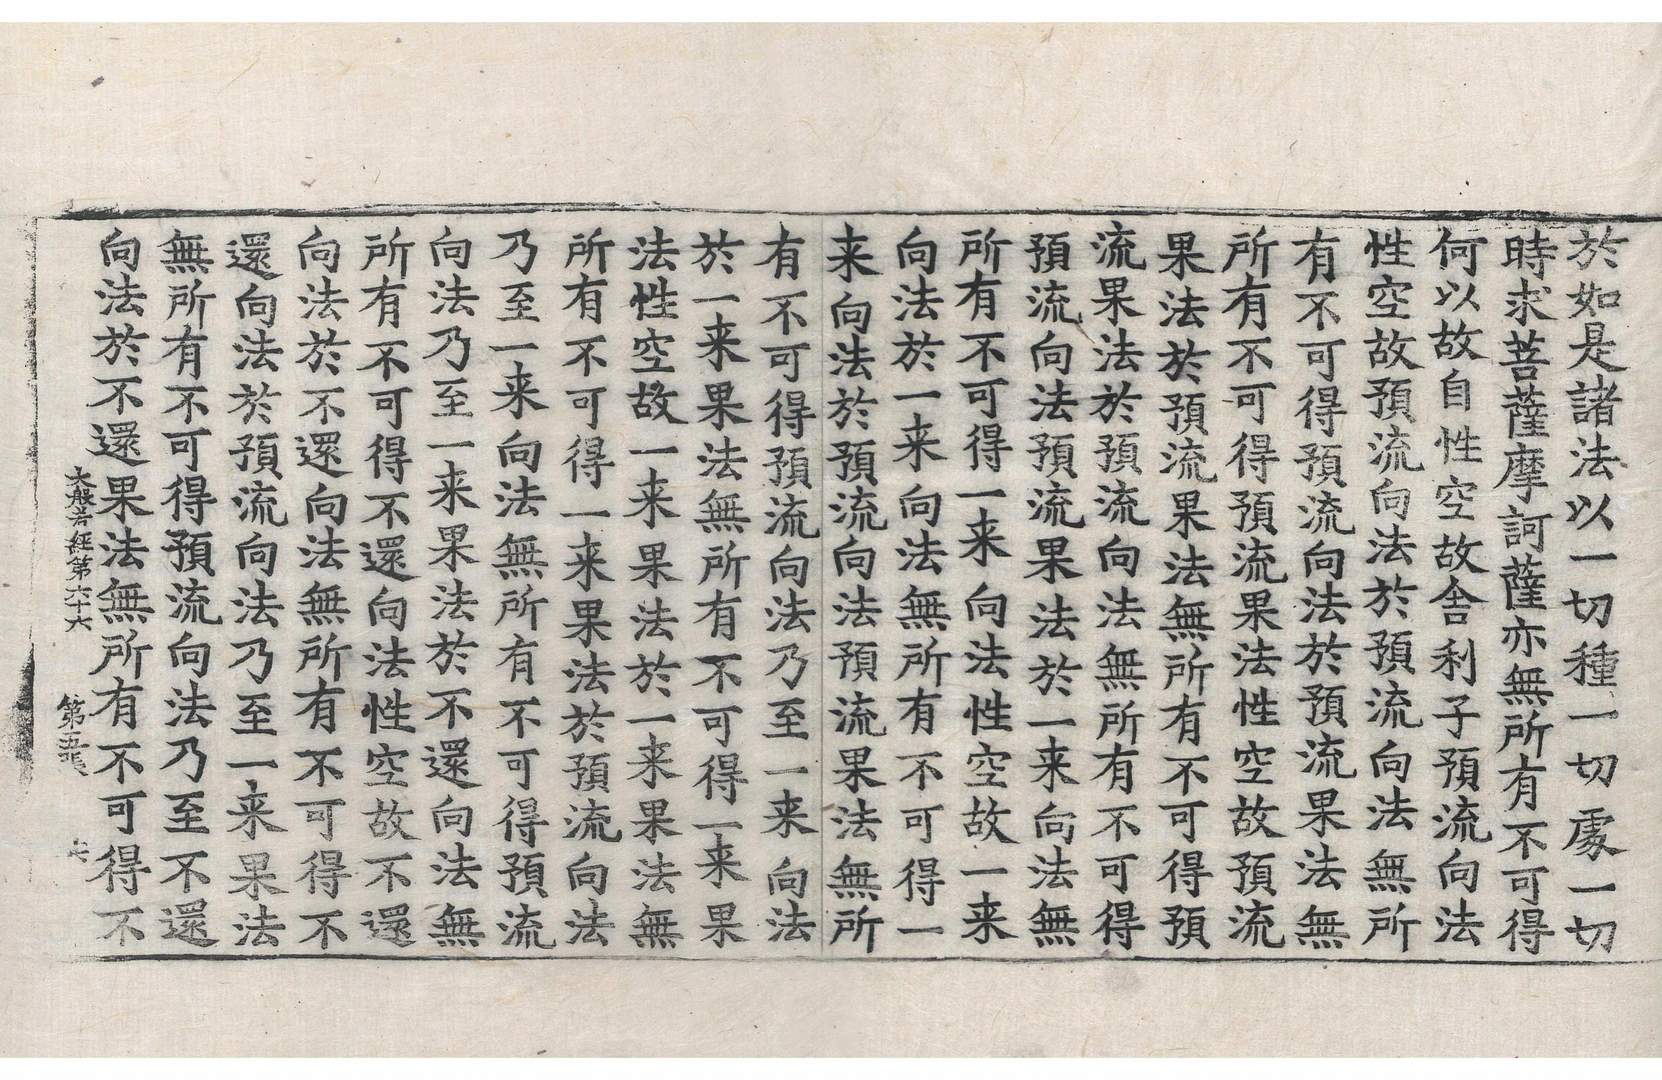 於如是諸法以一切種一切處一切
時求菩薩摩訶薩亦無所有不可得
何以故自性空故舍利子預流向法
性空故預流向法於預流向法無所
有不可得預流向法於預流果法無
所有不可得預流果法性空故預流
果法於預流果法無所有不可得預
流果法於預流向法無所有不可得
預流向法預流果法於一来向法無
所有不可得一来向法性空故一来
向法於一来向法無所有不可得一
来向法於預流向法預流果法無所
有不可得預流向法乃至一来向法
於一来果法無所有不可得一来果
法性空故一来果法於一来果法無
所有不可得一来果法於預流向法
乃至一来向法無所有不可得預流
向法乃至一来果法於不還向法無
所有不可得不還向法性空故不還
向法於不還向法無所有不可得不
還向法於預流向法乃至一来果法
無所有不可得預流向法乃至不還
向法於不還果法無所有不可得不
大般若經第六十六 第五張